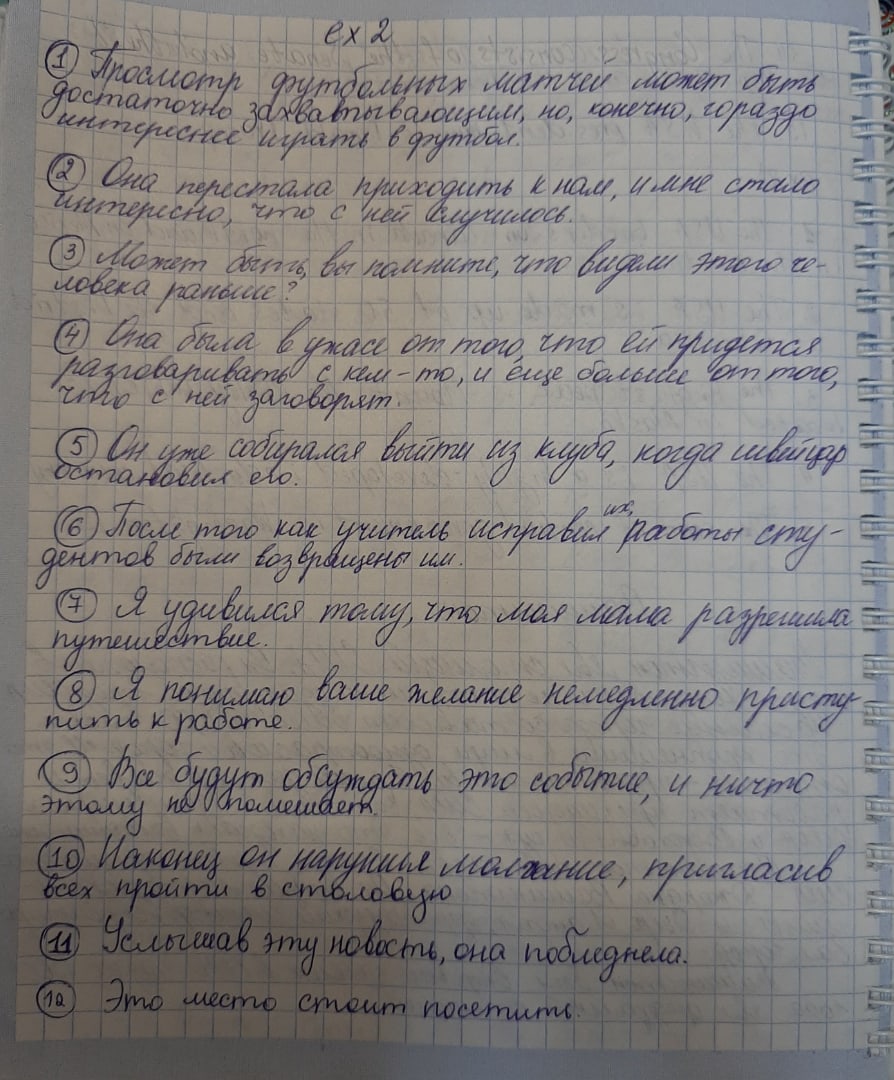 ex 2
① Просмотр футбольных матчей может быть
достаточно захватывающим, но, конечно, гораздо
интереснее играть в футбол.
② Она перестала приходить к нам, и мне стало
интересно, что с ней случилось.
③ Может быть, вы помните, что видели этого че-
ловека раньше?
④ Она была в ужасе от того, что ей придется
разговаривать с кем-то, и еще больше от того,
что с ней заговорят.
⑤ Он уже собирался выйти из клуба, когда швейцар
остановил его.
⑥ После того как учитель исправил их, работы сту-
дентов были возвращены им.
⑦ Я удивился тому, что моя мама разрешила
путешествие.
⑧ Я понимаю ваше желание немедленно присту-
пить к работе.
⑨ Все будут обсуждать это событие, и ничто
этому не помешает.
⑩ Наконец он нарушил молчание, пригласив
всех пройти в столовую
⑪ Услышав эту новость, она побледнела.
⑫ Это место стоит посетить.